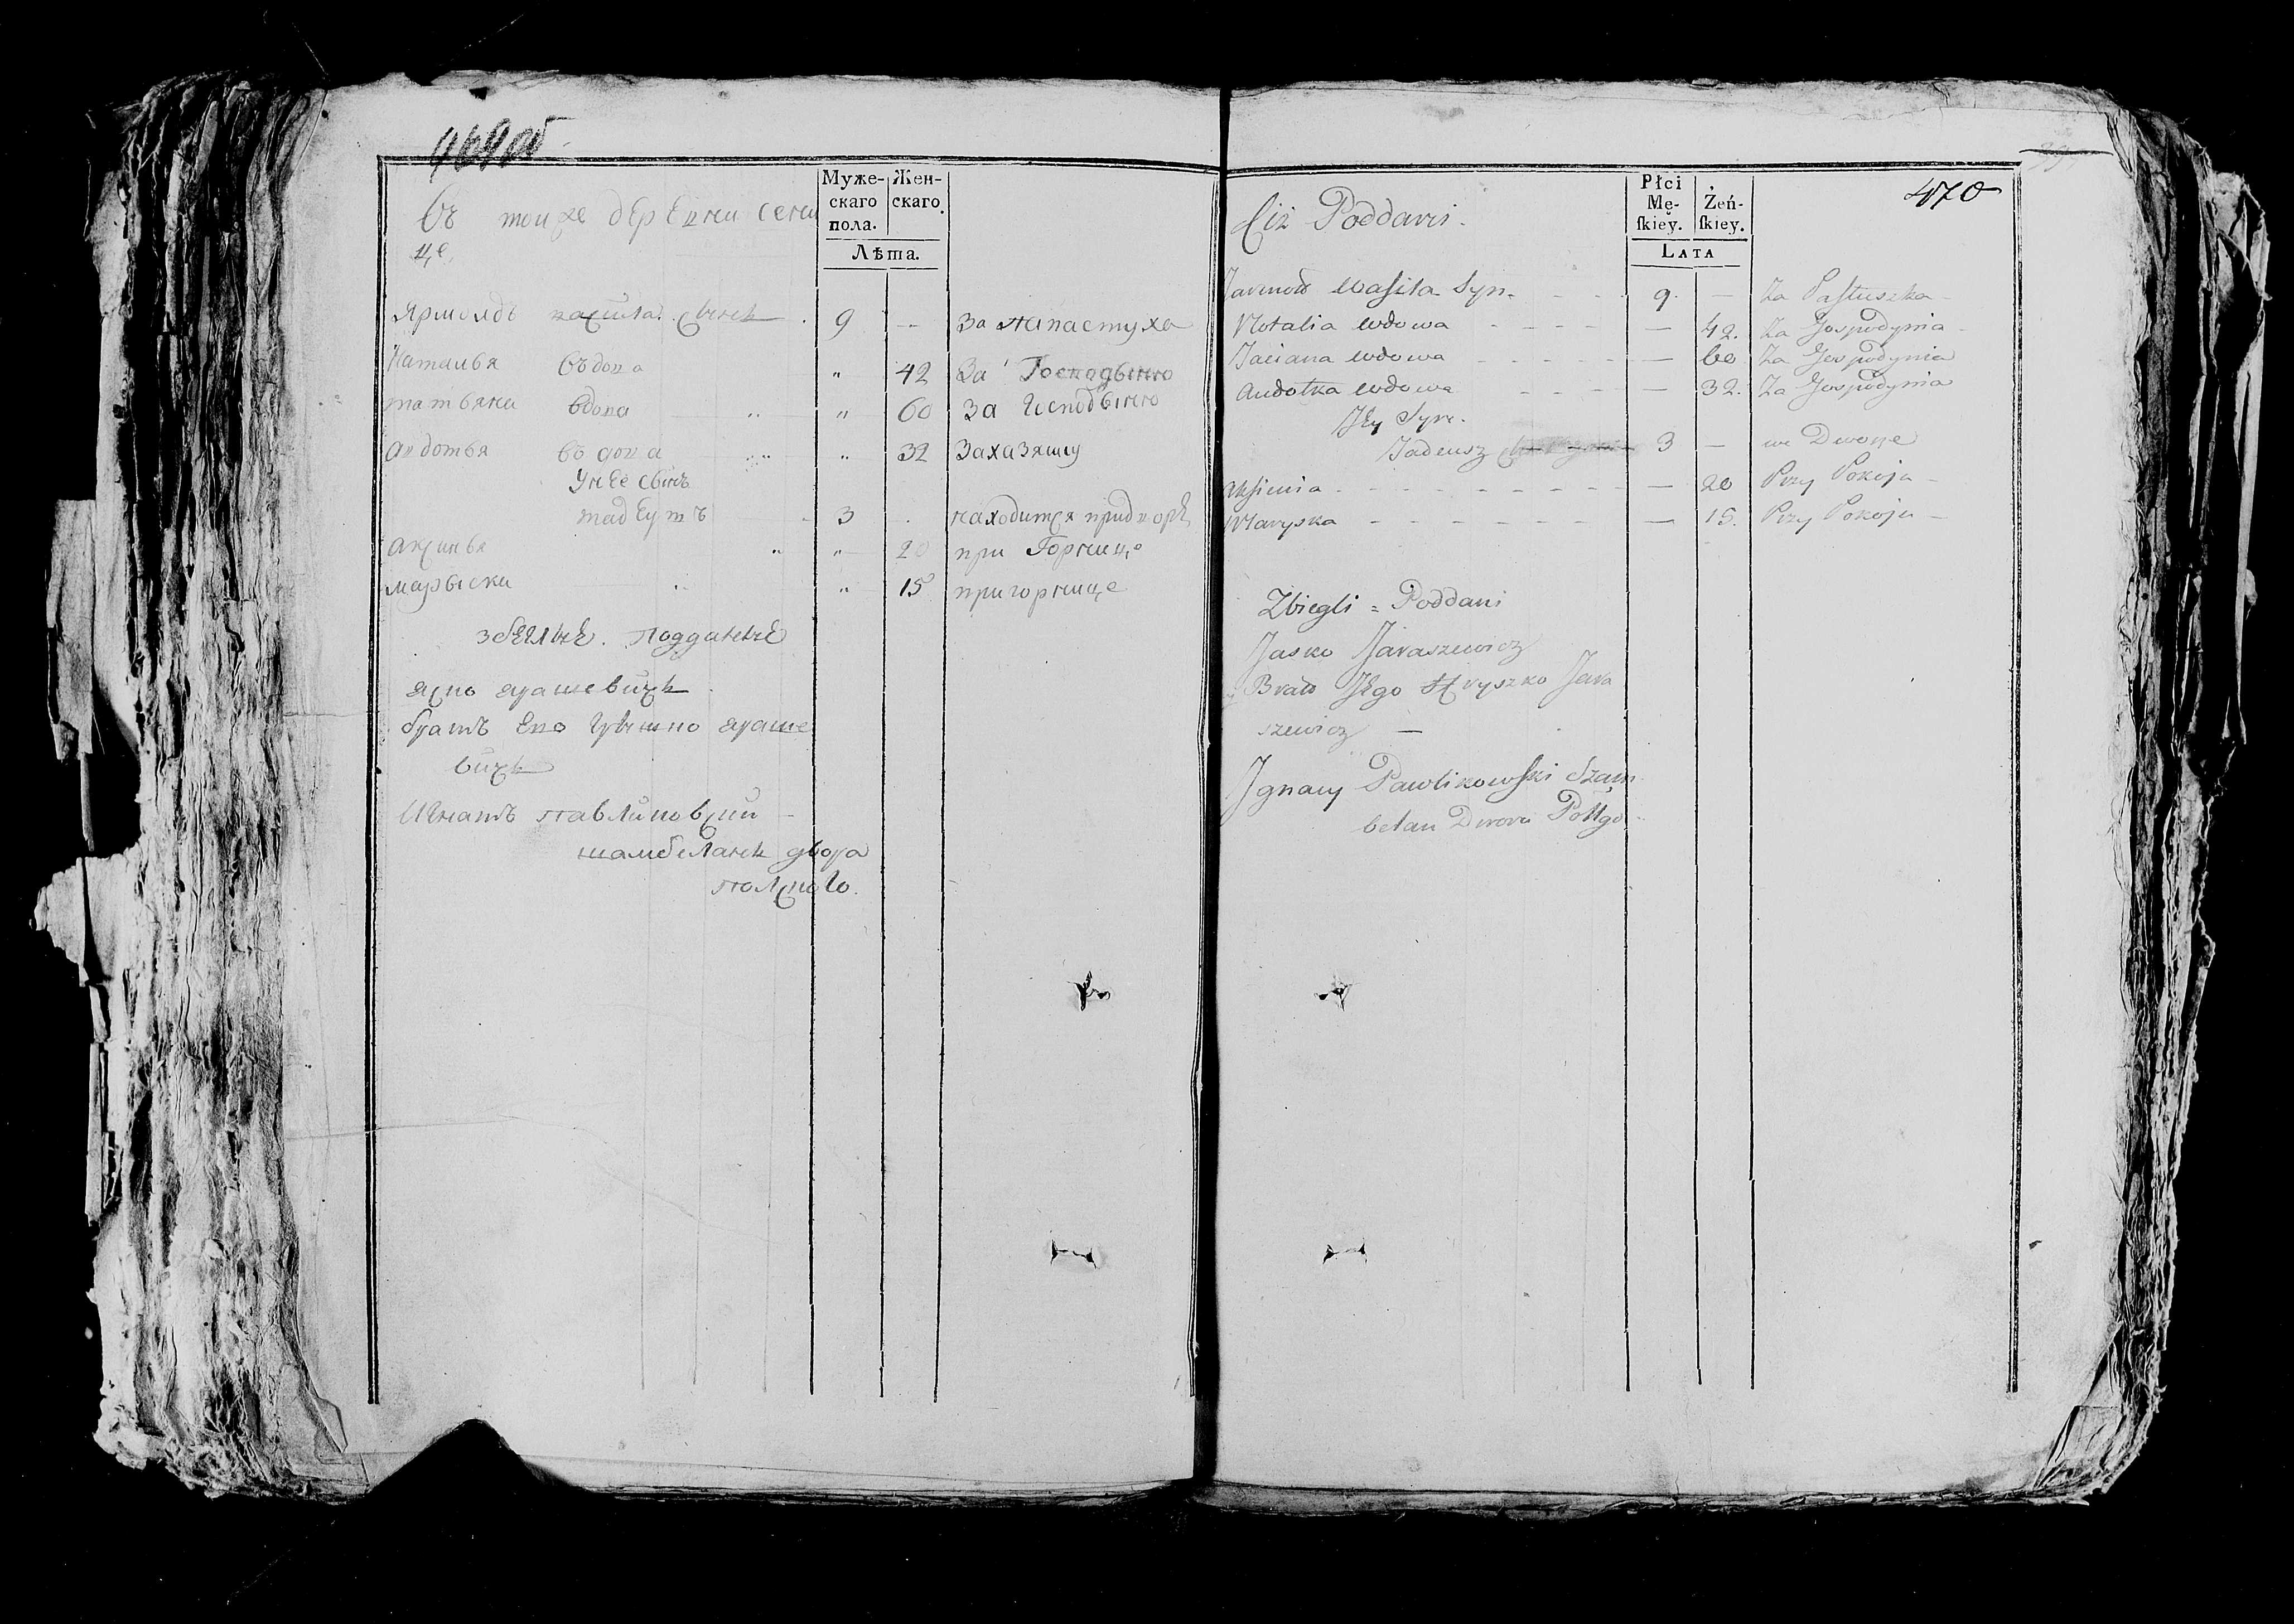 469 об
Муже-
скаго
пола.
Жен-
скаго.
Лѣта.
Въ тойже деревни сени
це
Ярмолдъ васила сынъ 9 -- За папастуха
Наталья въдова " 42 За Господыню
татьяна вдова " 60 за Господыню
авдотья въдова " 32 Захазяику
унее сынъ
тадеушъ 3 находится придворе
аксинья " 20 при Горнице
марыска " 15 пригорнице
збеглые. подданые
яско ярашевичъ
братъ его грышко яраше
вичъ
Игнатъ павликовский
шамбеланъ двора
полского.
470
Płci
Mę-
ſkiey.
Żeń-
ſkiey.
LATA
Ciż Poddani.
Jarmoł Wasila Syn. 9. — Za Pastuszka
Natalia wdowa — 42. Za Gospodynia
Taciana wdowa — 60 Za Gospodynia
Audotka wdowa — 32. Za Gospodynia
Jey Syn.
Tadeusz 3 — we Dworze
Aksimia — 20 Przy Pokoju
Maryska — 15. Przy Pokoju
Zbiegli = Poddani
Jasko Jaraszewicz
Brat Jego Hryszko Jara
szewicz —
Jgnacy Pawlikowski Szam
belan Dworu Pollgo